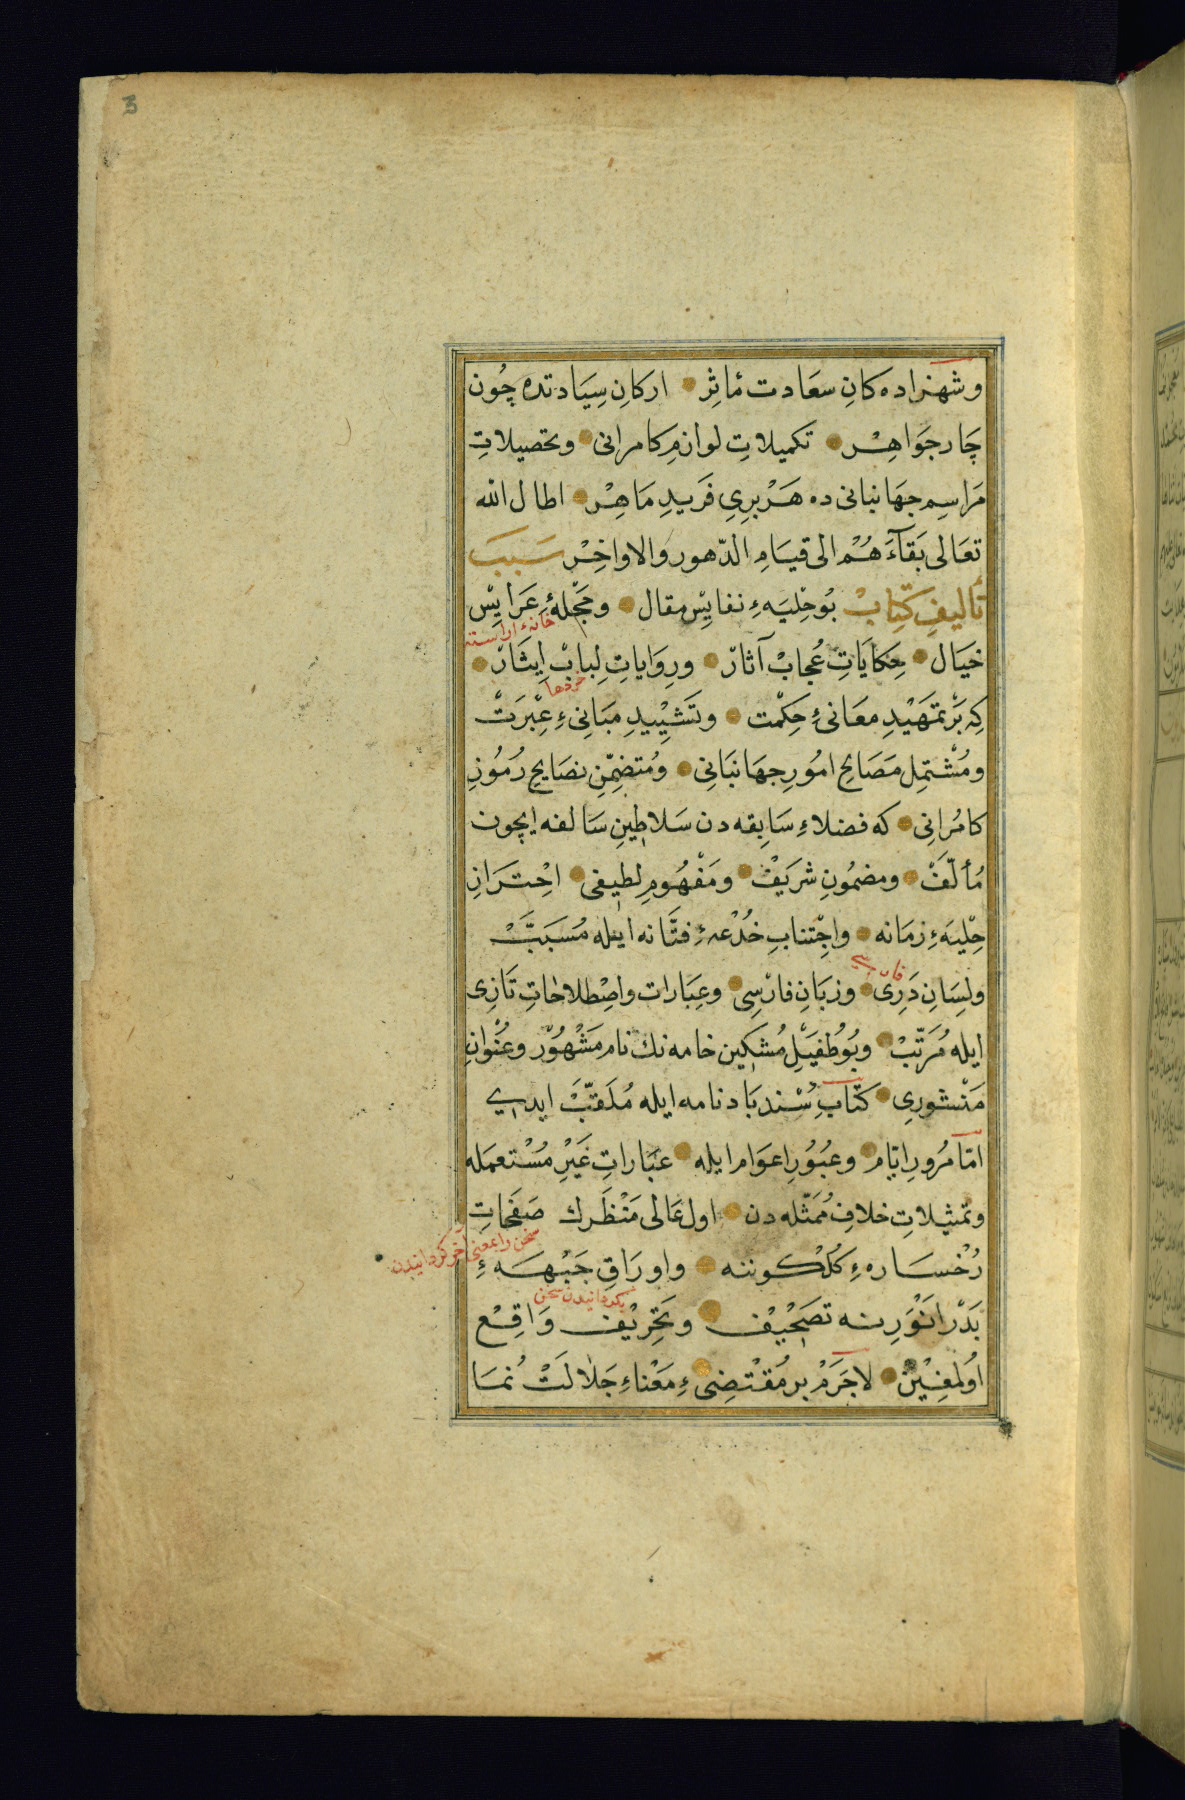 3
وشهزاده كانِ سعَادت مٔاثِر ارکانِ سِيَادتده چُون
چَار جَوَاهِرْ تکمیلاتِ لوازمِ کامرانی وتحصیلاتِ
مَراسِم جهَانبانی ده هَرْبرِی فَریدِ مَاهِرْ اطال الله
تعَالی بَقآءَهُمْ الی قیَامِ الدّهور والاواخِرْ سَبَبَ
تألیفِ کِتابْ بُوحِلیَهءِ نفایِسْ مقال وحَجْلهٔ عَرایِسْ
خانهء اراسته
خیَال حِکایَاتِ عُجابْ آثارْ ورِوَایاتِ لِبابْ اِیثَارْ
خردها
کِه بَرْتمهَیْدِ معَانیءِ حِکْمت وتَشیِیْدِ مَبَانِیءِ عِبْرَتْ
ومُشْتمِل مَصَالحِ امُورِ جهَانبَانِی ومُتضِمّنِ نصَایحِ رُمُوزِ
کامُرانِی که فضلاءِ سَابِقه دن سَلاطینِ سَالفه ایچون
مُألّفَ ومضمُونِ شرَیفْ ومَفْهُومِ لطیفی احْتِرَازِ
حِلْیَهءِ زمَانه واجْتنابِ خُدْعهءِ فتّانه ایله مُسَبَبَّ
فارسی
ولِسَانِ دَرِی وزبَانِ فارْسِی وعِبَارات واصْطلاحَاتِ تَازِی
ایله مُرَتّبْ وبُوطُفیَلِ مُشکین خامه نك نام مَشْهُوُر وعُنْوانِ
مَنْشورِی کتابِ سُندبَاد نامه ایله مُلَقبّ ایدی
امّا مُرورِ ایّام وعبُوُرِ اعوَام ایله عبَاراتِ غَیْرِ مُسْتعمَله
وتمثیلاتِ خلافِ مُمَثّله دن اول عَالی مَنْظَرك صَفَحَاتِ
سخن را بمعنی آخر گردانیدن
رُخْسَارهءِ کُلْکوننه واورَاقِ جَبْهَهءِ
بگردانیدن سخن
بَدْرانَوَرِنه تصَحْیفْ وتَحْرِیْف وَاقِعْ
اوُلمغِیْن لاجَرَمْ بر مُقْتضِیءِ مَعْناءِ جَلالَتْ نُمَا